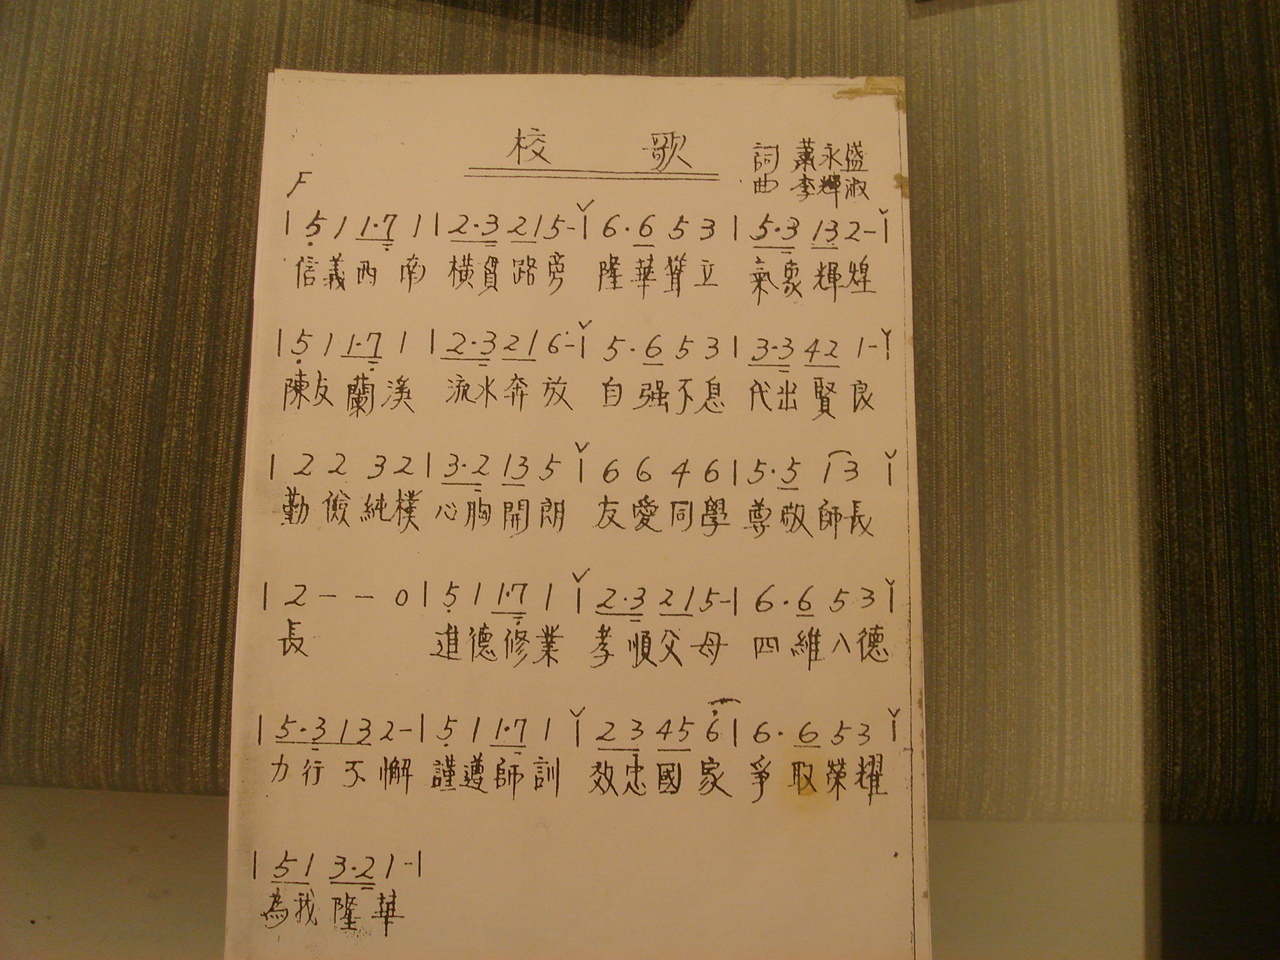 校 歌
詞 蕭永盛
曲 李輝淑
F
| 5 1 1·7 1 | 2·3 2 1 5 - | 6·6 5 3 | 5·3 1 3 2 - |
信義西南 橫貫路旁 隆華聳立 氣象輝煌
| 5 1 1·7 1 | 2·3 2 1 6 - | 5·6 5 3 | 3·3 4 2 1 - |
陳友蘭溪 流水奔放 自强不息 代出賢良
| 2 2 3 2 | 3·2 1 3 5 | 6 6 4 6 | 5·5 1 3 |
勤儉純樸 心胸開朗 友愛同學 尊敬師長
| 2 - - 0 | 5 1 1·7 1 | 2·3 2 1 5 - | 6·6 5 3 |
長 進德修業 孝順父母 四維八德
| 5·3 1 3 2 - | 5 1 1·7 1 | 2 3 4 5 6 | 6·6 5 3 |
力行不懈 謹遵師訓 效忠國家 爭取榮耀
| 5 1 3·2 1 - |
為我隆華